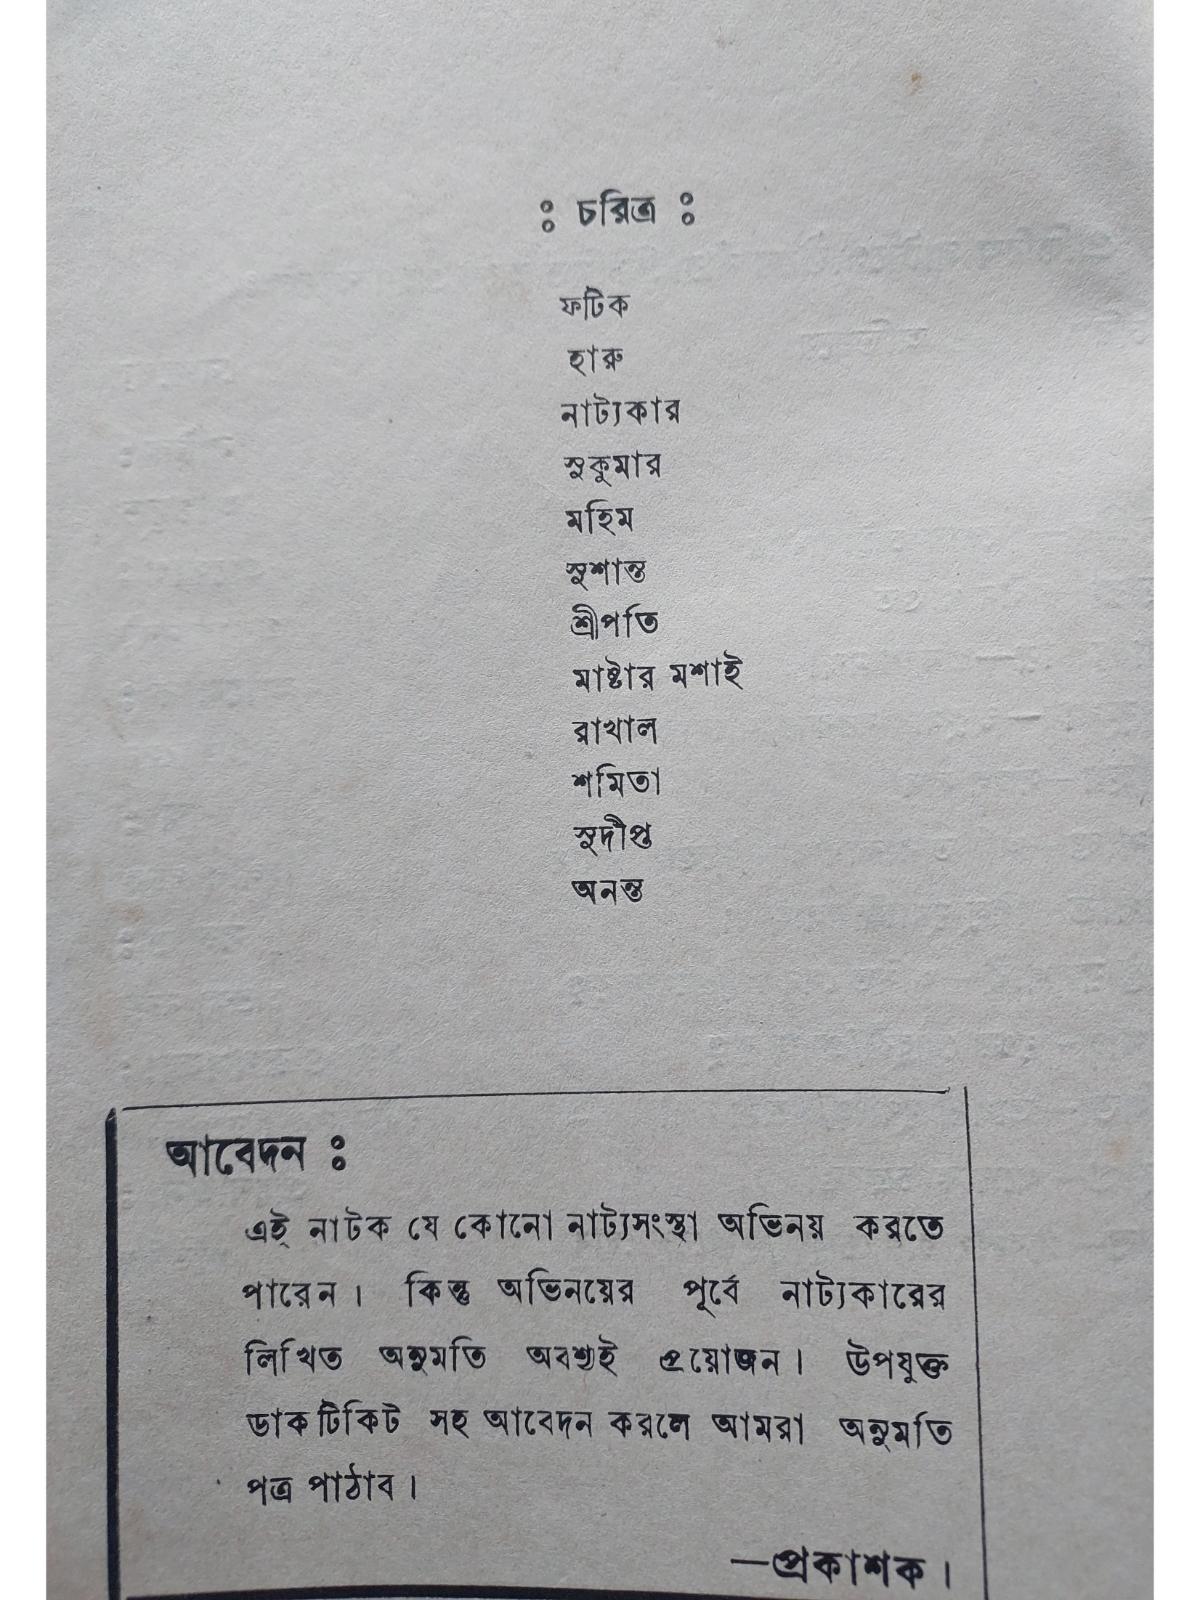 : চরিত্র :
ফটিক
হারু
নাট্যকার
সুকুমার
মহিম
সুশান্ত
শ্রীপতি
মাষ্টার মশাই
রাখাল
শমিতা
সুদীপ্ত
অনন্ত
আবেদন :
এই নাটক যে কোনো নাট্যসংস্থা অভিনয় করতে
পারেন। কিন্তু অভিনয়ের পূর্বে নাট্যকারের
লিখিত অনুমতি অবশ্যই প্রয়োজন। উপযুক্ত
ডাকটিকিট সহ আবেদন করলে আমরা অনুমতি
পত্র পাঠাব।
—প্রকাশক।